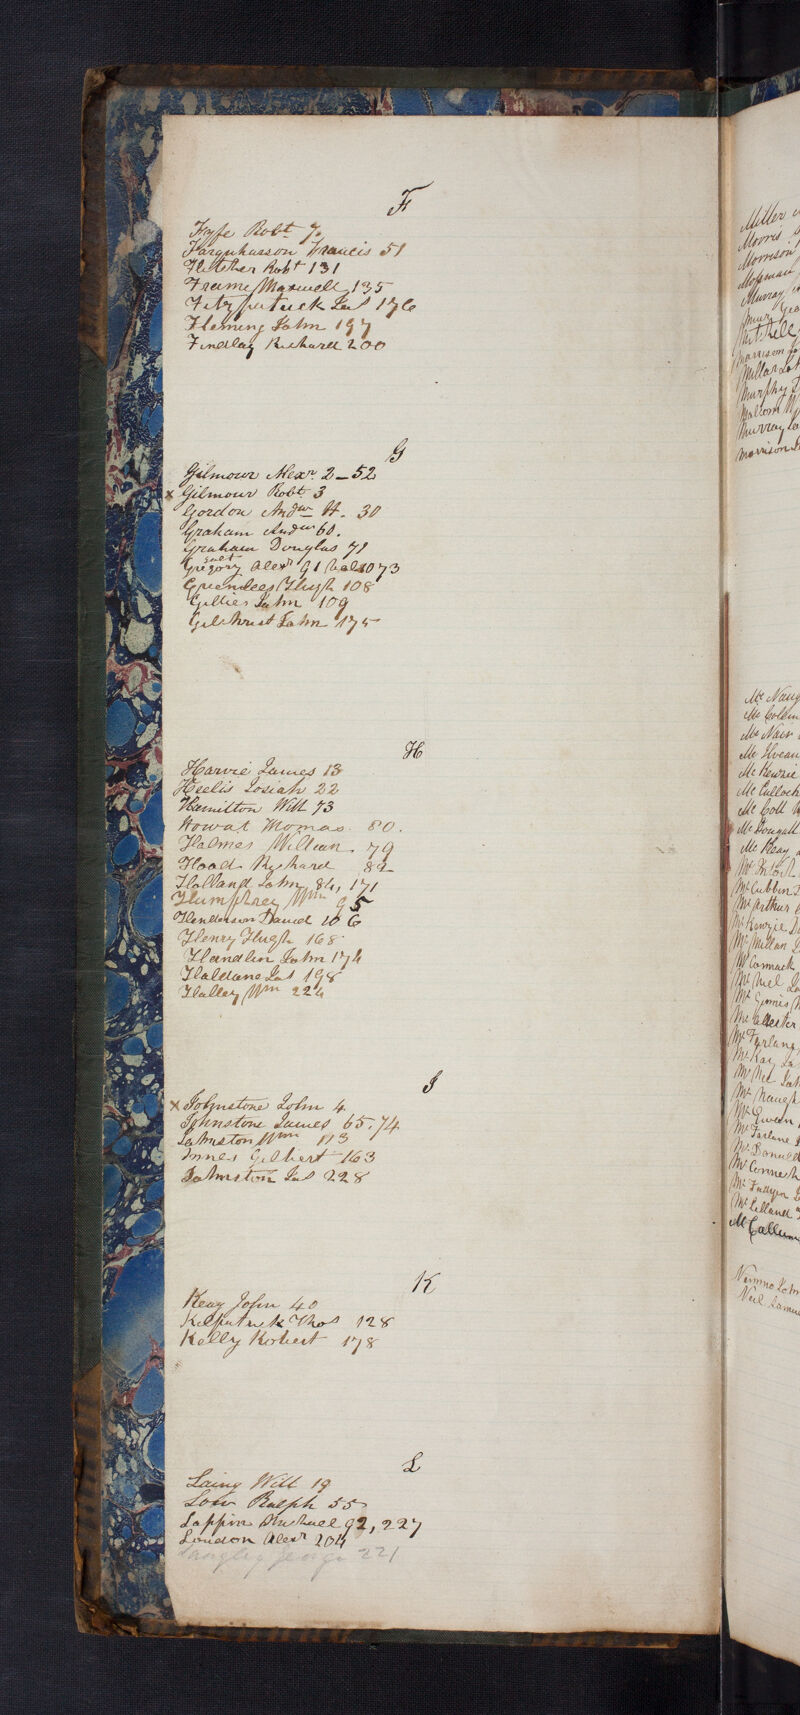 F
Fyfe Robt 7.
Farquharson Francis 51
Fletcher Robt 131
Frame Maxwell 135
Fitzpatrick Jas 176
Fleming John 197
Findlay Richard 200
G
Gilmour Alexr 2 – 52
x Gilmour Robt 3
Gordon Andw H. 30
Graham Andw 60.
Graham Douglas 71
Gregory Alexr 91
Greenlees Hugh 108
Gillies John 109
Gilchrist John 175
H
Harvie James 13
Heelis Josiah 22
Hamilton Will 73
Howat Thomas 80.
Holmes William 79
Hood Richard 82
Holland John 84, 171
Humphrey Wm 95
Henderson David 106
Henry Hugh 168
Handlin John 174
Haldane Jas 198
Halley Wm 224
J
x Johnstone John 4
Johnstone James 65. 74
Johnston Wm 113
Innes Gilbert 163
Johnston Jas 228
K
Keay John 40
Kilpatrick Thos 128
Kelly Robert 178
L
Laing Will 19
Low Ralph 55
Lappin Michael 92, 227
Loudon Alexr 204
Langley George 221
Miller
Morris
Morrison
Mossman
Murray
Muir Geo
Mitchell
Morrison
Millar
Murphy
Malcom
Murray
Morrison
Mc
Mc
Mc Nair
Mc
Mc Kenzie
Mc Culloch
Mc Coll
Mc Dougall
Mc Keay
Mc Intosh
Mc Cubbin
Mc Arthur
Mc Kenzie
Mc Millan
Mc Cormack
Mc Neil
Mc
Mc
Mc Farlane
Mc Kay
Mc
Mc
Mc Queen
Mc Farlane
Mc Donald
Mc
Mc Fadyen
Mc Lelland
McCallum
Nimmo John
Neil Samuel